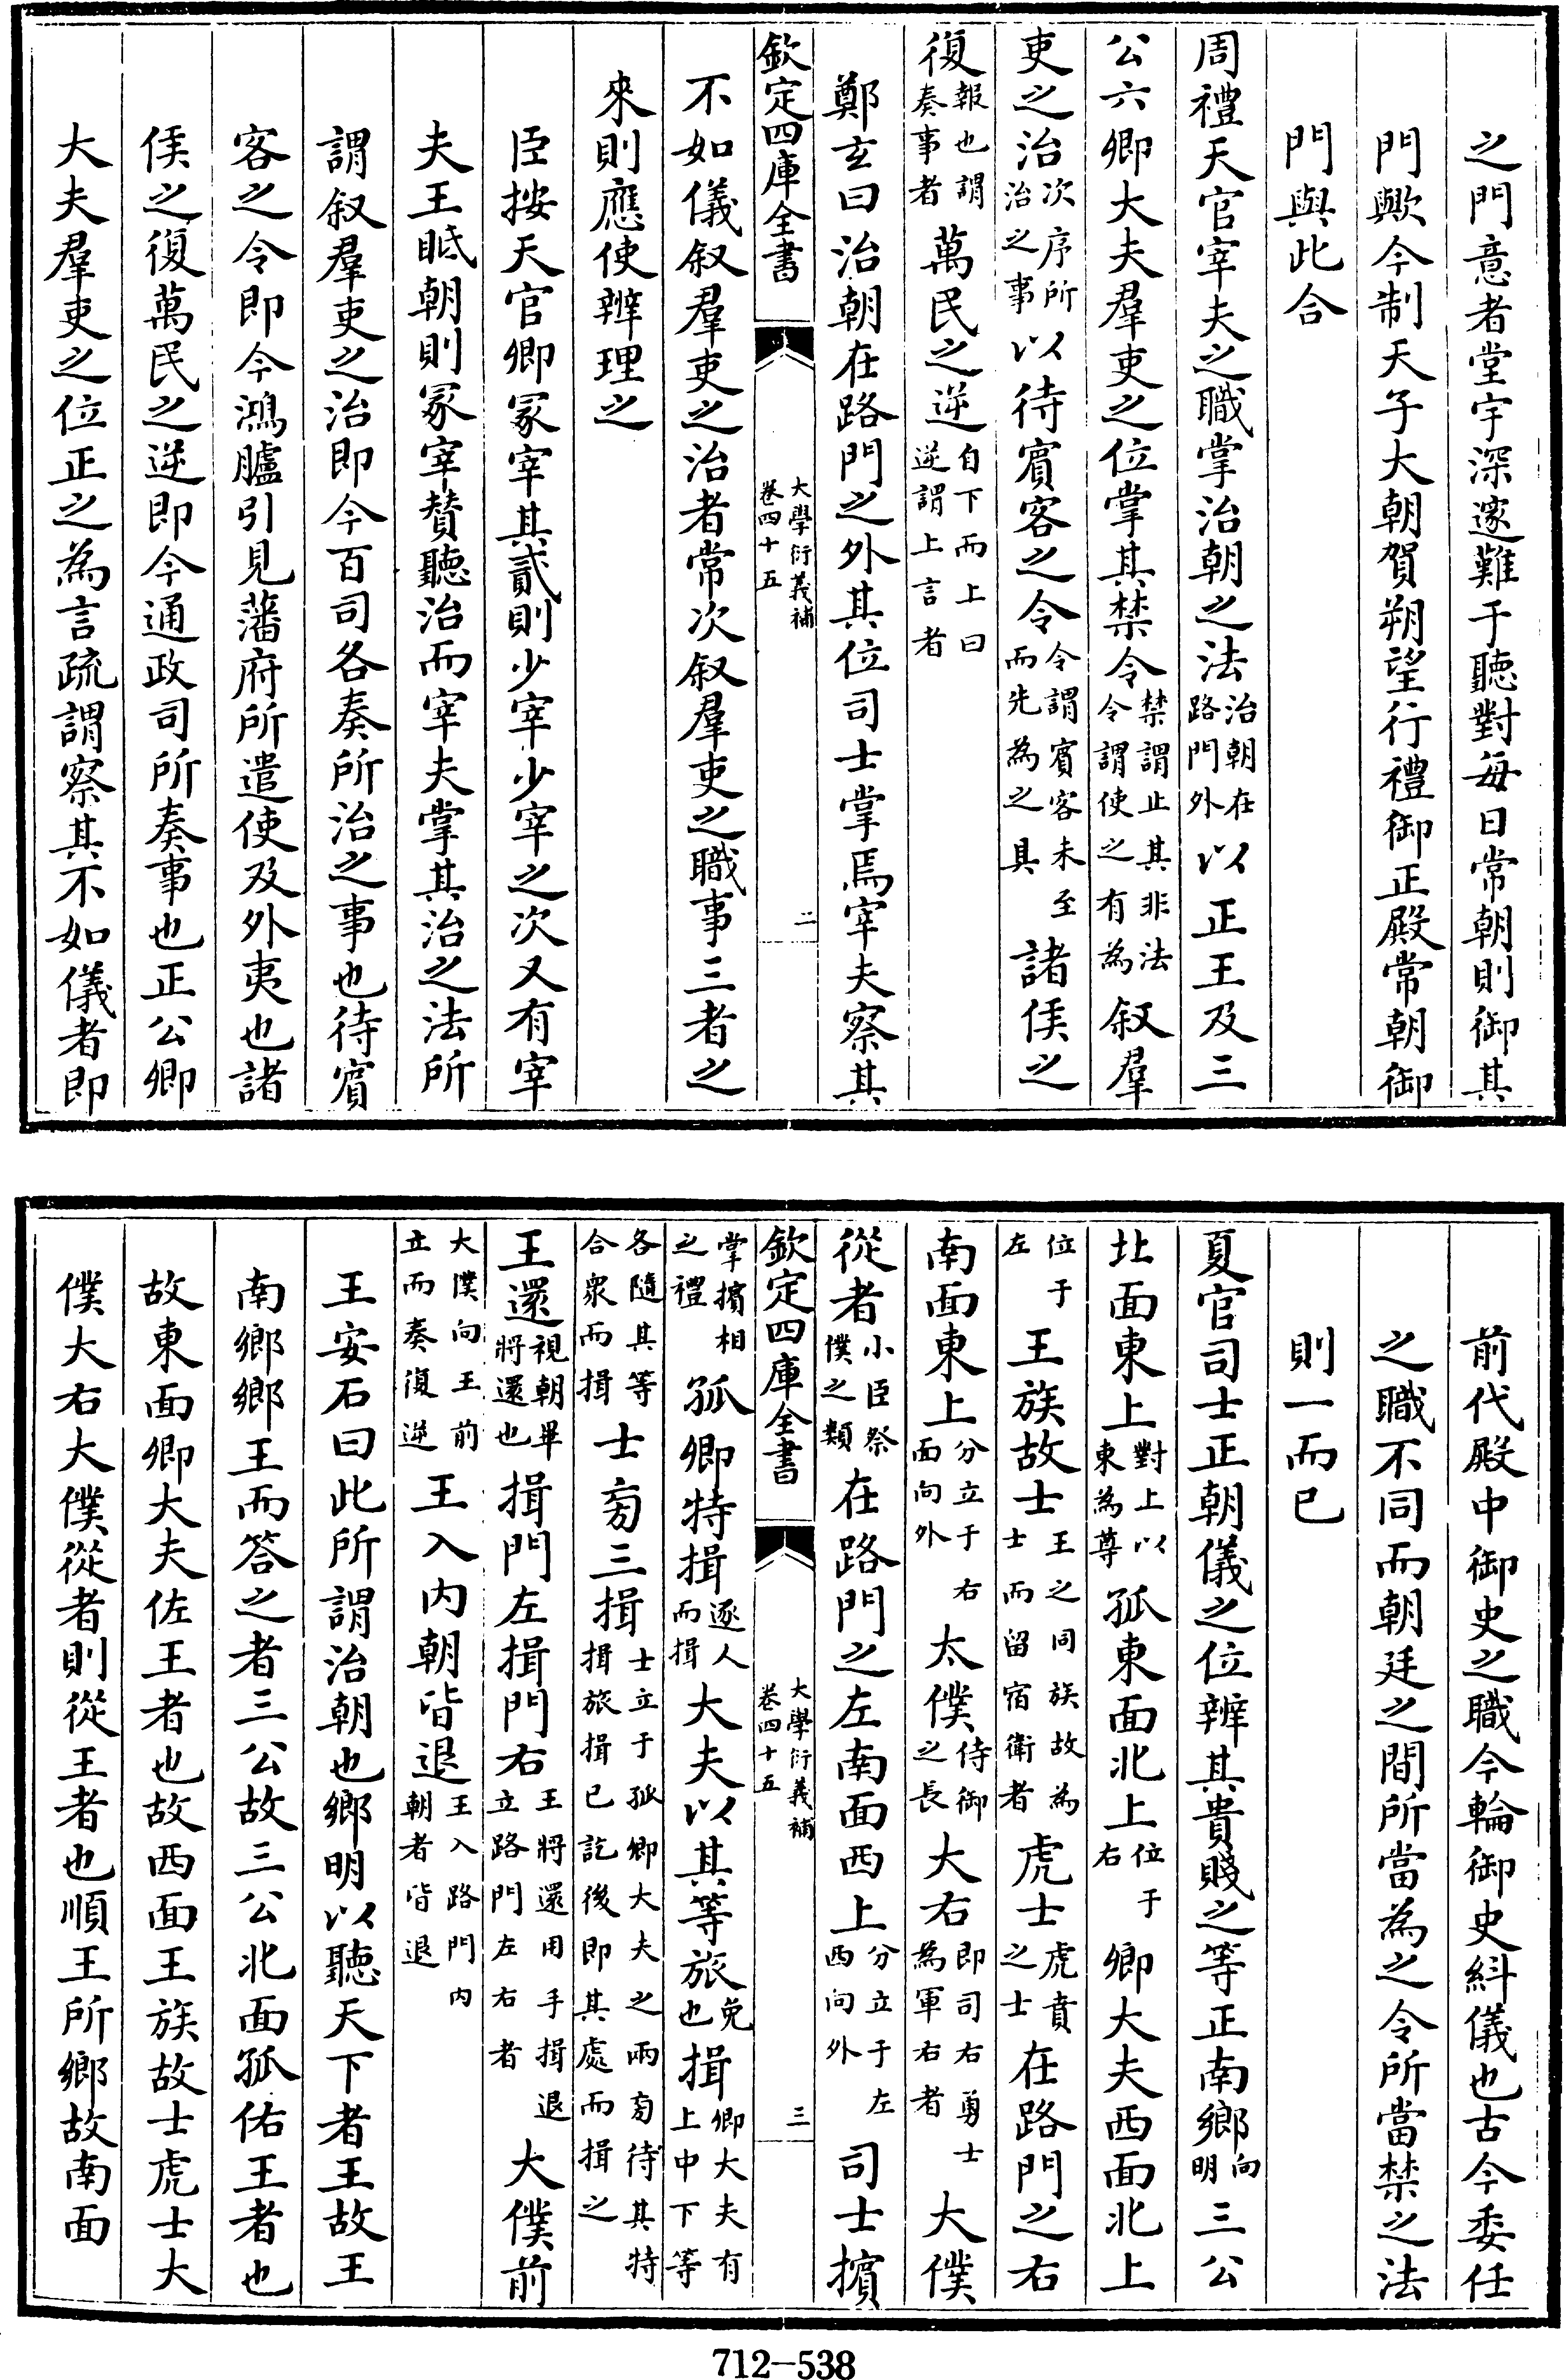 之門意者堂宇深邃難于聽對每日常朝則御其
門歟今制天子大朝賀朔望行禮御正殿常朝御
門與此合
周禮天官宰夫之職掌治朝之法治朝在路門外以正王及三
公六卿大夫羣吏之位掌其禁令禁謂止其非法令謂使之有為叙羣
吏之治次序所治之事以待賓客之令令謂賓客未至而先為之具諸侯之
復報也謂奏事者萬民之逆自下而上曰逆謂上言者
鄭玄曰治朝在路門之外其位司士掌焉宰夫察其
欽定四庫全書 大學衍義補卷四十五 二
不如儀叙羣吏之治者常次叙羣吏之職事三者之
來則應使辨理之
臣按天官卿冢宰其貳則少宰少宰之次又有宰
夫王眂朝則冢宰贊聽治而宰夫掌其治之法所
謂叙羣吏之治即今百司各奏所治之事也待賓
客之令即今鴻臚引見藩府所遣使及外夷也諸
侯之復萬民之逆即今通政司所奏事也正公卿
大夫羣吏之位正之為言疏謂察其不如儀者即
前代殿中御史之職今輪御史糾儀也古今委任
之職不同而朝廷之間所當為之令所當禁之法
則一而已
夏官司士正朝儀之位辨其貴賤之等正南鄉向明三公
北面東上對上以東為尊孤東面北上位于右卿大夫西面北上
位于左王族故士王之同族故為士而留宿衛者虎士虎賁之士在路門之右
南面東上分立于右面向外太僕侍御之長大右即司右勇士為軍右者大僕
從者小臣祭僕之類在路門之左南面西上分立于左西向外司士擯
欽定四庫全書 大學衍義補卷四十五 三
掌擯相之禮孤卿特揖逐人而揖大夫以其等旅免也揖卿大夫有上中下等
各隨其等合衆而揖士旁三揖士立于孤卿大夫之兩旁待其特揖旅揖已訖後即其處而揖之
王還視朝畢將還也揖門左揖門右王將還用手揖退立路門左右者大僕前
大僕向王前立而奏復逆王入内朝皆退王入路門内朝者皆退
王安石曰此所謂治朝也鄉明以聽天下者王故王
南鄉鄉王而答之者三公故三公北面孤佑王者也
故東面卿大夫佐王者也故西面王族故士虎士大
僕大右大僕從者則從王者也順王所鄉故南面
712-538